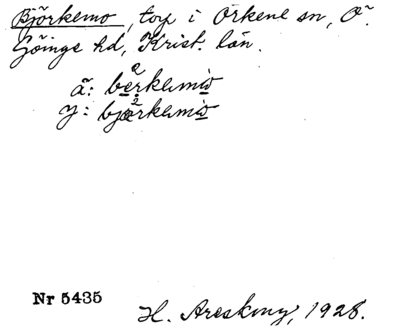 Björkemo, torp i Örkene sn, Ö.
Göinge hd, Krist. län.
ä: berkemo
y: bjärkemo
Nr 5435
H. Areskoug, 1928.